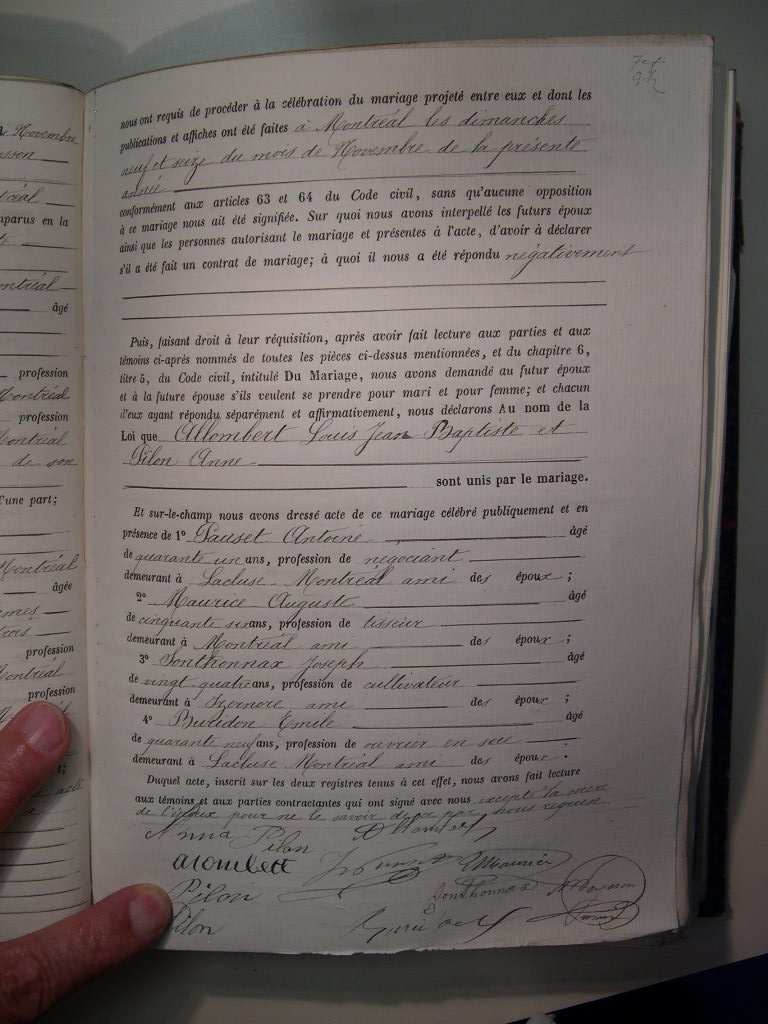 Novembre
sson
tréal
mparus en la
ontréal
âgé
profession
Montréal
profession
Montréal
de son
l'une part;
Montréal
âgée
mes
trois
profession
Montréal
profession
nous ont requis de procéder à la célébration du mariage projeté entre eux et dont les
publications et affiches ont été faites à Montréal les dimanches
neuf et seize du mois de Novembre de la présente
année
conformément aux articles 63 et 64 du Code civil, sans qu'aucune opposition
à ce mariage nous ait été signifiée. Sur quoi nous avons interpellé les futurs époux
ainsi que les personnes autorisant le mariage et présentes à l'acte, d'avoir à déclarer
s'il a été fait un contrat de mariage; à quoi il nous a été répondu négativement
Puis, faisant droit à leur réquisition, après avoir fait lecture aux parties et aux
témoins ci-après nommés de toutes les pièces ci-dessus mentionnées, et du chapitre 6,
titre 5, du Code civil, intitulé Du Mariage, nous avons demandé au futur époux
et à la future épouse s'ils veulent se prendre pour mari et pour femme; et chacun
d'eux ayant répondu séparément et affirmativement, nous déclarons Au nom de la
Loi que Allombert Louis Jean Baptiste et
Pilon Anne
sont unis par le mariage.
Et sur-le-champ nous avons dressé acte de ce mariage célébré publiquement et en
présence de 1° Pauset Antoine âgé
de quarante un ans, profession de négociant
demeurant à Lacluse Montréal ami des époux;
2° Maurice Auguste âgé
de cinquante six ans, profession de tisseur
demeurant à Montréal ami des époux;
3° Sonthonnax Joseph âgé
de vingt quatre ans, profession de cultivateur
demeurant à Izernore ami des époux;
4° Buridon Emile âgé
de quarante neuf ans, profession de ouvrier en soie
demeurant à Lacluse Montréal ami des époux.
Duquel acte, inscrit sur les deux registres tenus à cet effet, nous avons fait lecture
aux témoins et aux parties contractantes qui ont signé avec nous excepté la mère
de l'époux pour ne le savoir de ce par nous requise
Anna Pilon
alombert
Pilon
Sonthonnax
Pilon